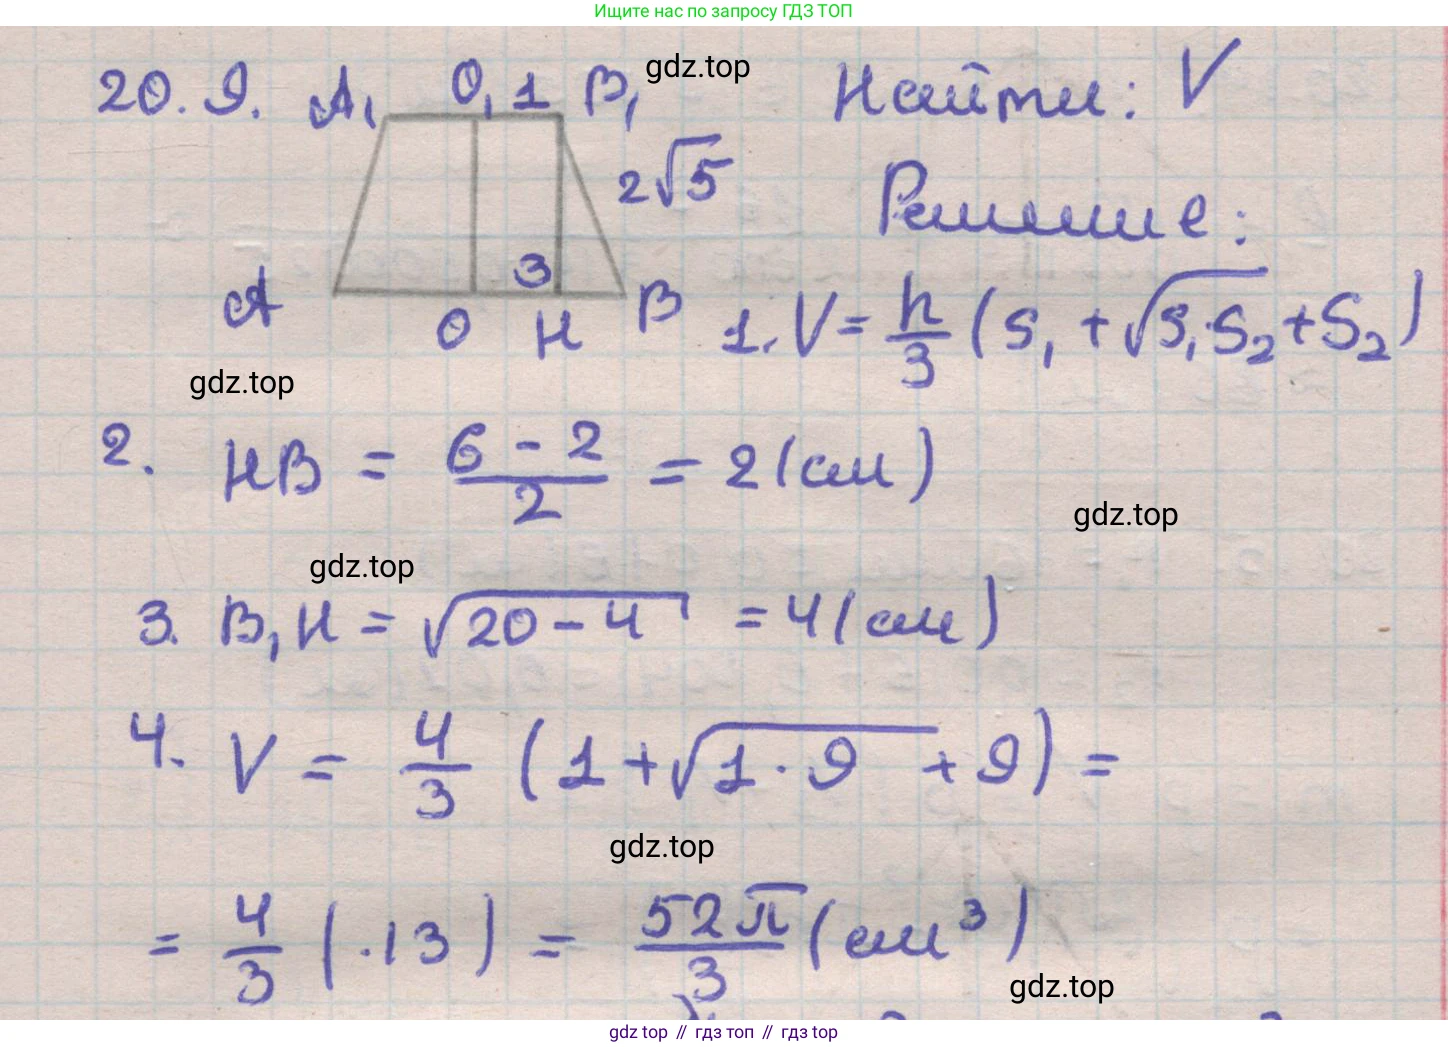 Ищите нас по запросу ГДЗ ТОП
20.9. A₁ O₁ 1 B₁ gdz.top Найти: V
2√5 Решение:
A O 3 H B 1. V = h/3 (S₁ + √S₁·S₂ + S₂)
gdz.top
2. HB = (6 - 2)/2 = 2 (см)
gdz.top
gdz.top
3. B₁H = √20 - 4 = 4 (см)
4. V = 4/3 (1 + √1·9 + 9) =
gdz.top
= 4/3 (·13) = 52π/3 (см³)
gdz.top
gdz top // гдз топ // гдз top